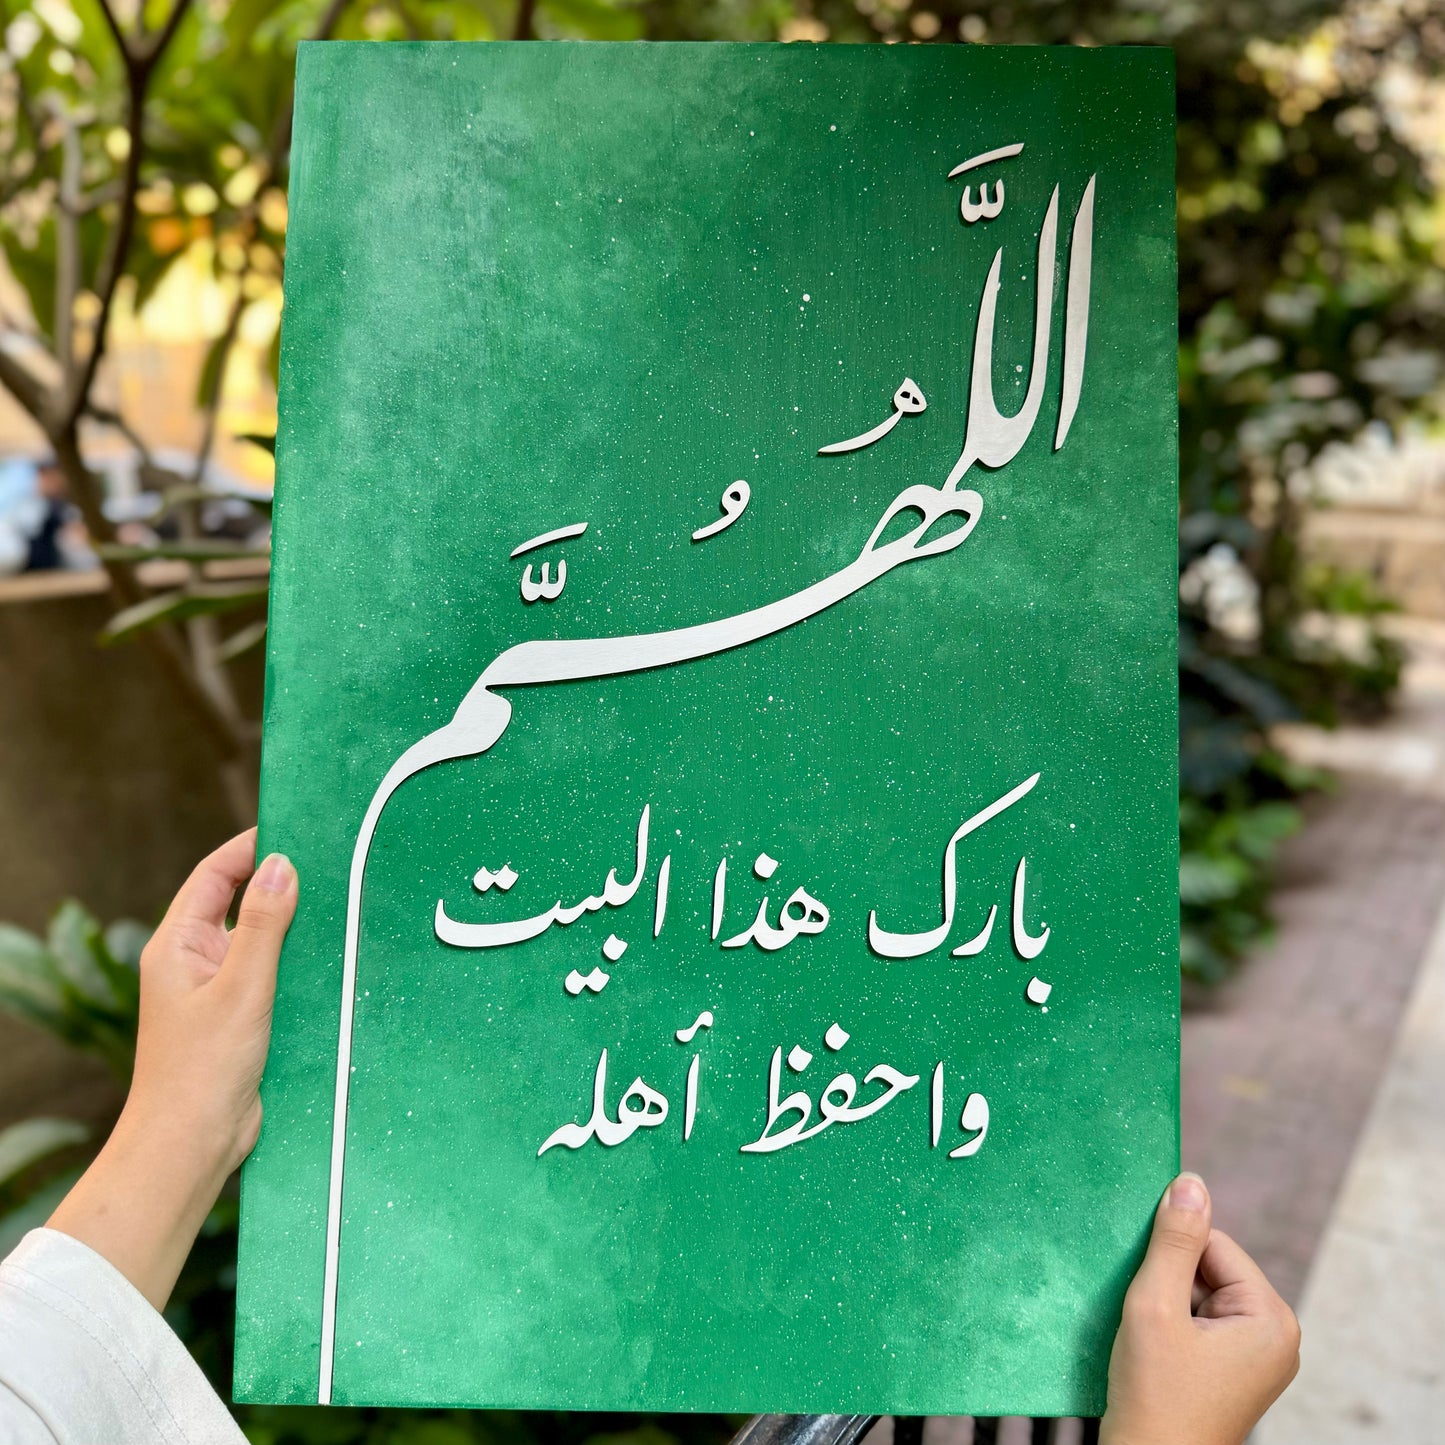 اللَّهُمَّ
بارك هذا البيت
واحفظ أهله